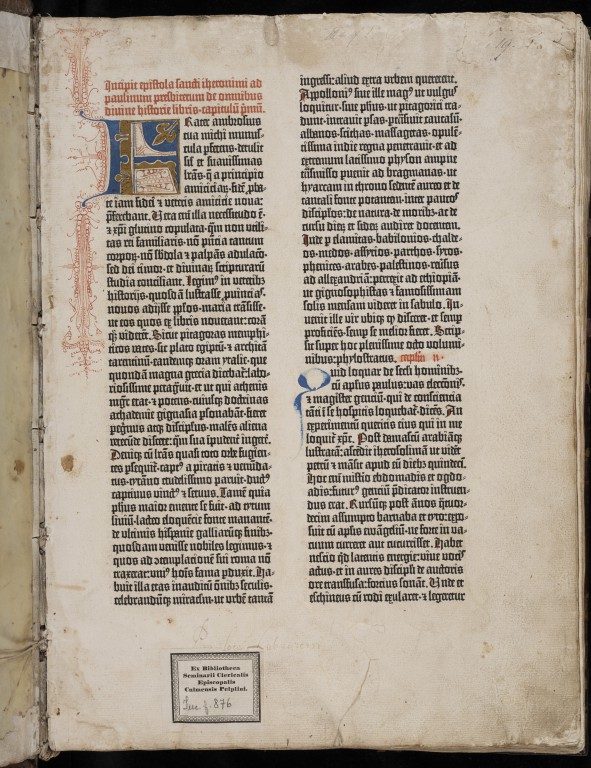 Incipit epistola sancti iheronimi ad
paulinum presbiterum de omnibus
divine historie libris·capitulũ p̃mũ.
Frater ambrosius
tua michi munus-
cula ꝑferens·detulit
sił et suavissimas
lrãs·q̃ a principio
amiciciaꝝ·fidẽ ꝓba-
te iam fidei ⁊ veteris amicicie nova:
ꝑferebant. Vera em̃ illa necessitudo ẽ·
⁊ xp̃i glutino copulata·qm̃ non utili-
tas rei familiaris·nõ p̃ncia tantum
corpoꝝ·nõ sbdola ⁊ palpãs adulacõ·
sed dei timor·et divinaꝝ scripturarũ
studia conciliant. Legimꝰ in veteribꝫ
historijs·quosdã lustrasse ꝓvincias·
novos adijsse ppl̃os·maria trãsisse·
ut eos quos ex libris noverant: corã
qꝫ viderẽt. Sicut pitagoras memphi-
ticos vates·sic plato egiptũ·⁊ architã
tarentinũ·eandemqꝫ oram ytalie·que
quondã magna grecia dicebaꝶ: labo-
riosissime peragravit·et ut qui athenis
mgr̃ erat·⁊ potens·cuiusqꝫ doctrinas
achademie gignasia ꝑsonabãt·fieret
peg̃nus atqꝫ discipulꝰ·malẽs aliena
verecũde discere: qm̃ sua ĩpudent̃ ingerẽ.
Deniqꝫ cũ lrãs quasi toto orbe fugien-
tes ꝑsequit̃·captꝰ a piratis ⁊ venũda-
tus·tyrãno crudelissimo paruit·ductꝰ
captivus vinctꝰ ⁊ servus. Tamẽ quia
ph̃us maior emente se fuit·ad tytum
livium·lacteo eloquẽcie fonte manantẽ·
de ultimis hispanie galliarũqꝫ finibꝫ·
quosdam venisse nobiles legimus·⁊
quos ad ↄtemplacionẽ sui roma nõ
traxerat: uniꝰ hoĩs fama ꝑduxit. Ha-
buit illa etas inauditũ oĩnibꝫ seculis·
celebrandũqꝫ miraculũ·ut urbẽ tantã
ingressi: aliud extra urbem quererent.
Appolloniꝰ sive ille magꝰ ut vulgus
loquitur·sive ph̃us·ut pitagorici tra-
dunt·intravit ꝑsas·ꝑtrãsivit caucasũ·
albanos·scithas·massagetas·opulẽ-
tissima indie regna penetravit·et ad
extremum latissimo physon amne
tñsmisso ꝑvenit ad bragmanas·ut
hyarcam in throno sedentẽ aureo et de
tantali fonte potantem·inter paucos
discipl̃os·de natura·de moribꝫ ac de
cursu dierꝫ et siderꝫ audiret docentem.
Inde ꝑ elamitas·babilonios·chalde-
os·medos·assyrios·parthos·syros·
phenices·arabes·palestinos·reũsus
ad allexandriã: perrexit ad ethiopiã·
ut gignosophistas ⁊ famosissimam
solis mensam videret in sabulo. In-
venit ille vir ubiqꝫ qd̃ disceret·et semꝑ
proficiẽs·semꝑ se melior fieret. Scrip-
sit super hoc plenissime octo volumi-
nibus: phylostratus. cap̃lm ii·
Quid loquar de secl̃i hominibꝫ·
cũ apl̃us paulus: vas electõis·
⁊ magister genciũ·qui de consciencia
tãti ĩ se hospitis loquebaꝶ·dicẽs. An
experimentũ queritis eius qui in me
loquiꝶ xp̃c. Post damascũ arabiãqꝫ
lustratã: ascẽdit iherosolimã ut videret
petrũ ⁊ mãsit apud eũ diebꝫ quindeci.
Hoc em̃ misterio ebdomadis et ogdo-
adis: futurꝰ genciũ p̃dicator instruen-
dus erat. Rursũqꝫ post ãnos q̃tuor-
decim assumpto barnaba et tyto: expo-
suit cũ apl̃is ewãgeliũ·ne forte in va-
cuum curreret aut cucurrisset. Habet
nescio qd̃ latentis energie: vive vocis
actus·et in aures discipl̃i de auctoris
ore transfusa: forcius sonat. Unde et
eschineus cũ rodi exularet·⁊ legeretur
Ex Bibliotheca
Seminarii Clericalis
Episcopalis
Culmensis Pelplini.
876